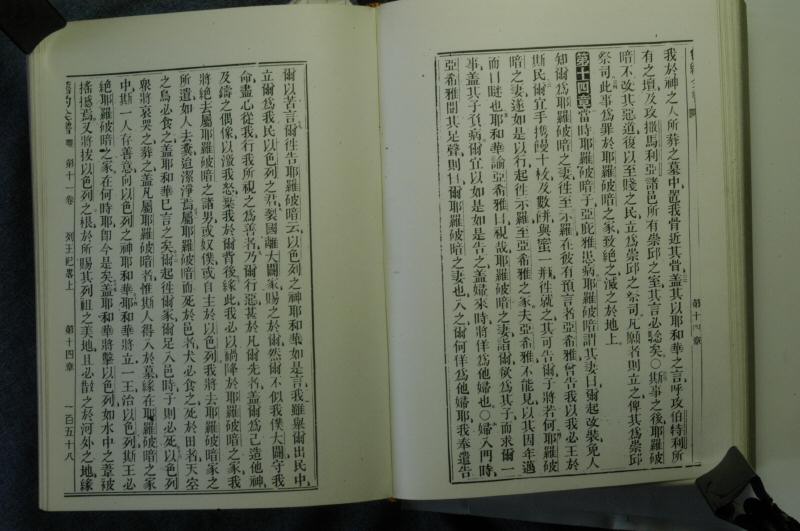 我於神之人所葬之墓中置我骨近其骨蓋其以耶和華之言呼攻伯特利所
有之壇及攻撒馬利亞諸邑所有崇邱之室其言必驗矣○斯事之後耶羅破
暗不改其惡道復以至賤之民立為崇邱之祭司凡願者則立之俾其為崇邱
祭司此事為罪於耶羅破暗之家致絕之滅之於地上
第十四章 當時耶羅破暗子亞庇雅患病耶羅破暗謂其妻曰爾起改裝免人
知爾為耶羅破暗之妻徃示羅在彼有預言者亞希雅曾告我以我必王於
斯民爾宜手携饅十枚及數餅與蜜一瓶徃就之其可告爾子將若何耶羅破
暗之妻遂如是以行起徃示羅至亞希雅之家夫亞希雅不能見以其因年邁
而目瞇也耶和華諭亞希雅曰視哉耶羅破暗之妻詣爾欲為其子而求爾一
事蓋其子負病爾宜以如是如是告之蓋婦來時將佯為他婦也○婦入門時
亞希雅聞其足聲則曰爾耶羅破暗之妻也入之爾何佯為他婦耶我奉遣告
第十四章
爾以苦言爾徃告耶羅破暗云以色列之神耶和華如是言我雖舉爾出民中
立爾為我民以色列之君裂國離大闢家賜之於爾然爾不似我僕大闢守我
命盡心從我行我所視之為善者乃爾行惡甚於凡爾先者蓋爾為己造他神
及鑄之偶像以激我怒棄我於爾背後緣此我必以禍降於耶羅破暗之家我
將絕去屬耶羅破暗之諸男或奴僕或自主於以色列我將去耶羅破暗家之
所遺如人去糞迨潔淨焉屬耶羅破暗而死於邑者犬必食之死於田者天空
之鳥必食之蓋耶和華已言之矣爾起徃爾家爾足入邑時子則必死以色列
衆將哀哭之葬之蓋凡屬耶羅破暗者惟斯人得入於墓緣在耶羅破暗之家
中斯一人存善意向以色列之神耶和華耶和華將立一王治以色列斯王必
絕耶羅破暗之家在何時耶即今是矣蓋耶和華將擊以色列如水中之葦被
搖撼焉又將拔以色列之根於所賜其列祖之美地且必散之於河外之地緣
第十一卷 列王紀畧上 第十四章 一百五十八